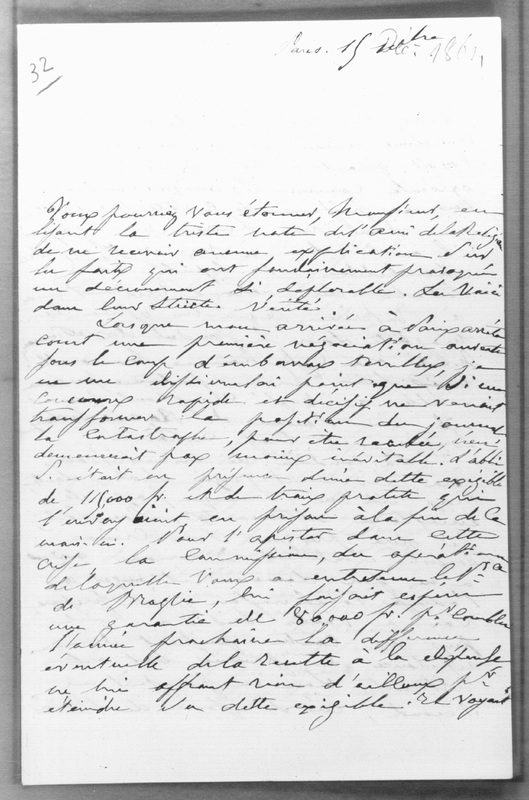 32
Paris. 15 Dbre 1861
Vous pourriez vous étonner, Monsieur, en
lisant la triste note de l'ami de la Religion
de ne recevoir aucune explication sur
les faits qui ont soudainement provoqué
un dénouement si déplorable. Les voici
dans leur stricte vérité.
Lorsque mon arrivée à Paris arrêta
court une première négociation ouverte
sous le coup d'embarras terribles, je
ne me dissimulai point que si un
concours rapide et décisif ne venait
transformer la position du journal
la catastrophe, pour être reculée, n'en
demeurerait pas moins inévitable. L'abbé
S. était en présence d'une dette exigible
de 115000 fr. et de traux protêts qui
l'envoyaient en prison à la fin de ce
mois-ci. Pour l'assister dans cette
crise, la Commission, des opérations
de laquelle vous a entretenu le Pce
de Broglie, lui faisait espérer
une garantie de 80,000 fr. pr combler
l'année prochaine la différence
éventuelle de la recette à la dépense
ne lui offrant rien d'ailleurs pr
éteindre sa dette exigible. Et voyant